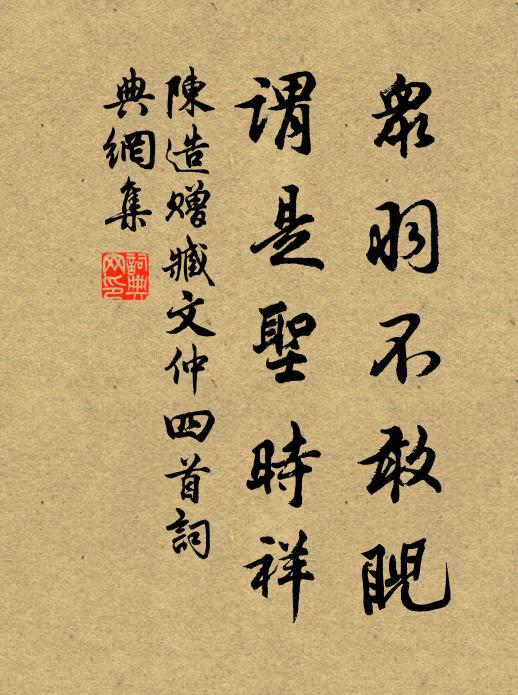 眾羽不敢睨
謂是聖時祥
陳造贈臧文仲四首詞
典網集
詞典網印